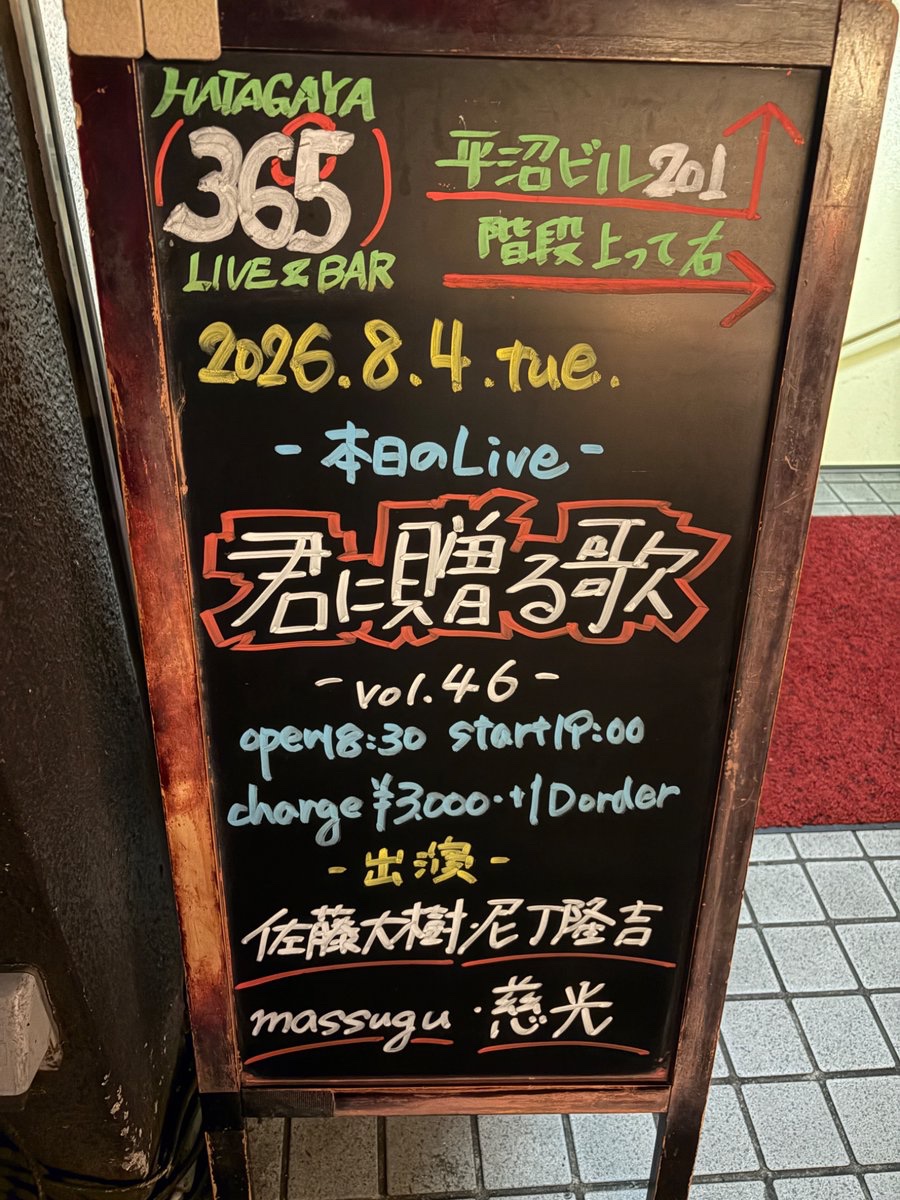 HATAGAYA
(365)
LIVE & BAR
平沼ビル201
階段上って右
2026.8.4.tue.
-本日のLive-
君に贈る歌
-vol.46-
open18:30 start19:00
charge ¥3.000.+1Dorder
-出演-
佐藤大樹・尼丁隆吉
massugu・慈光